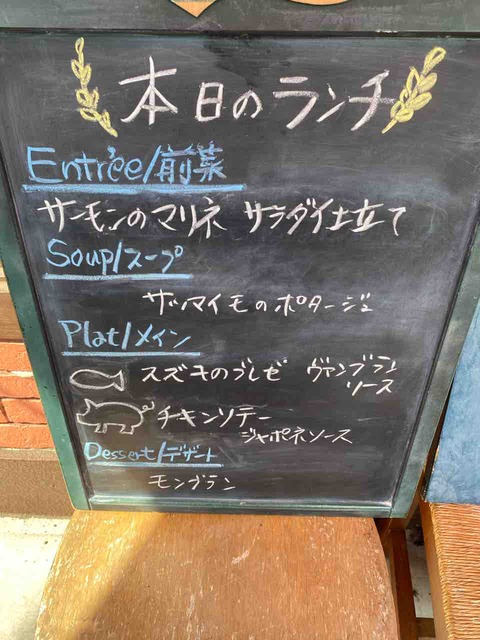 本日のランチ
Entrée/前菜
サーモンのマリネ サラダ仕立て
Soup/スープ
サツマイモのポタージュ
Plat/メイン
スズキのブレゼ ヴァンブラン
ソース
チキンソテー
ジャポネソース
Dessert/デザート
モンブラン